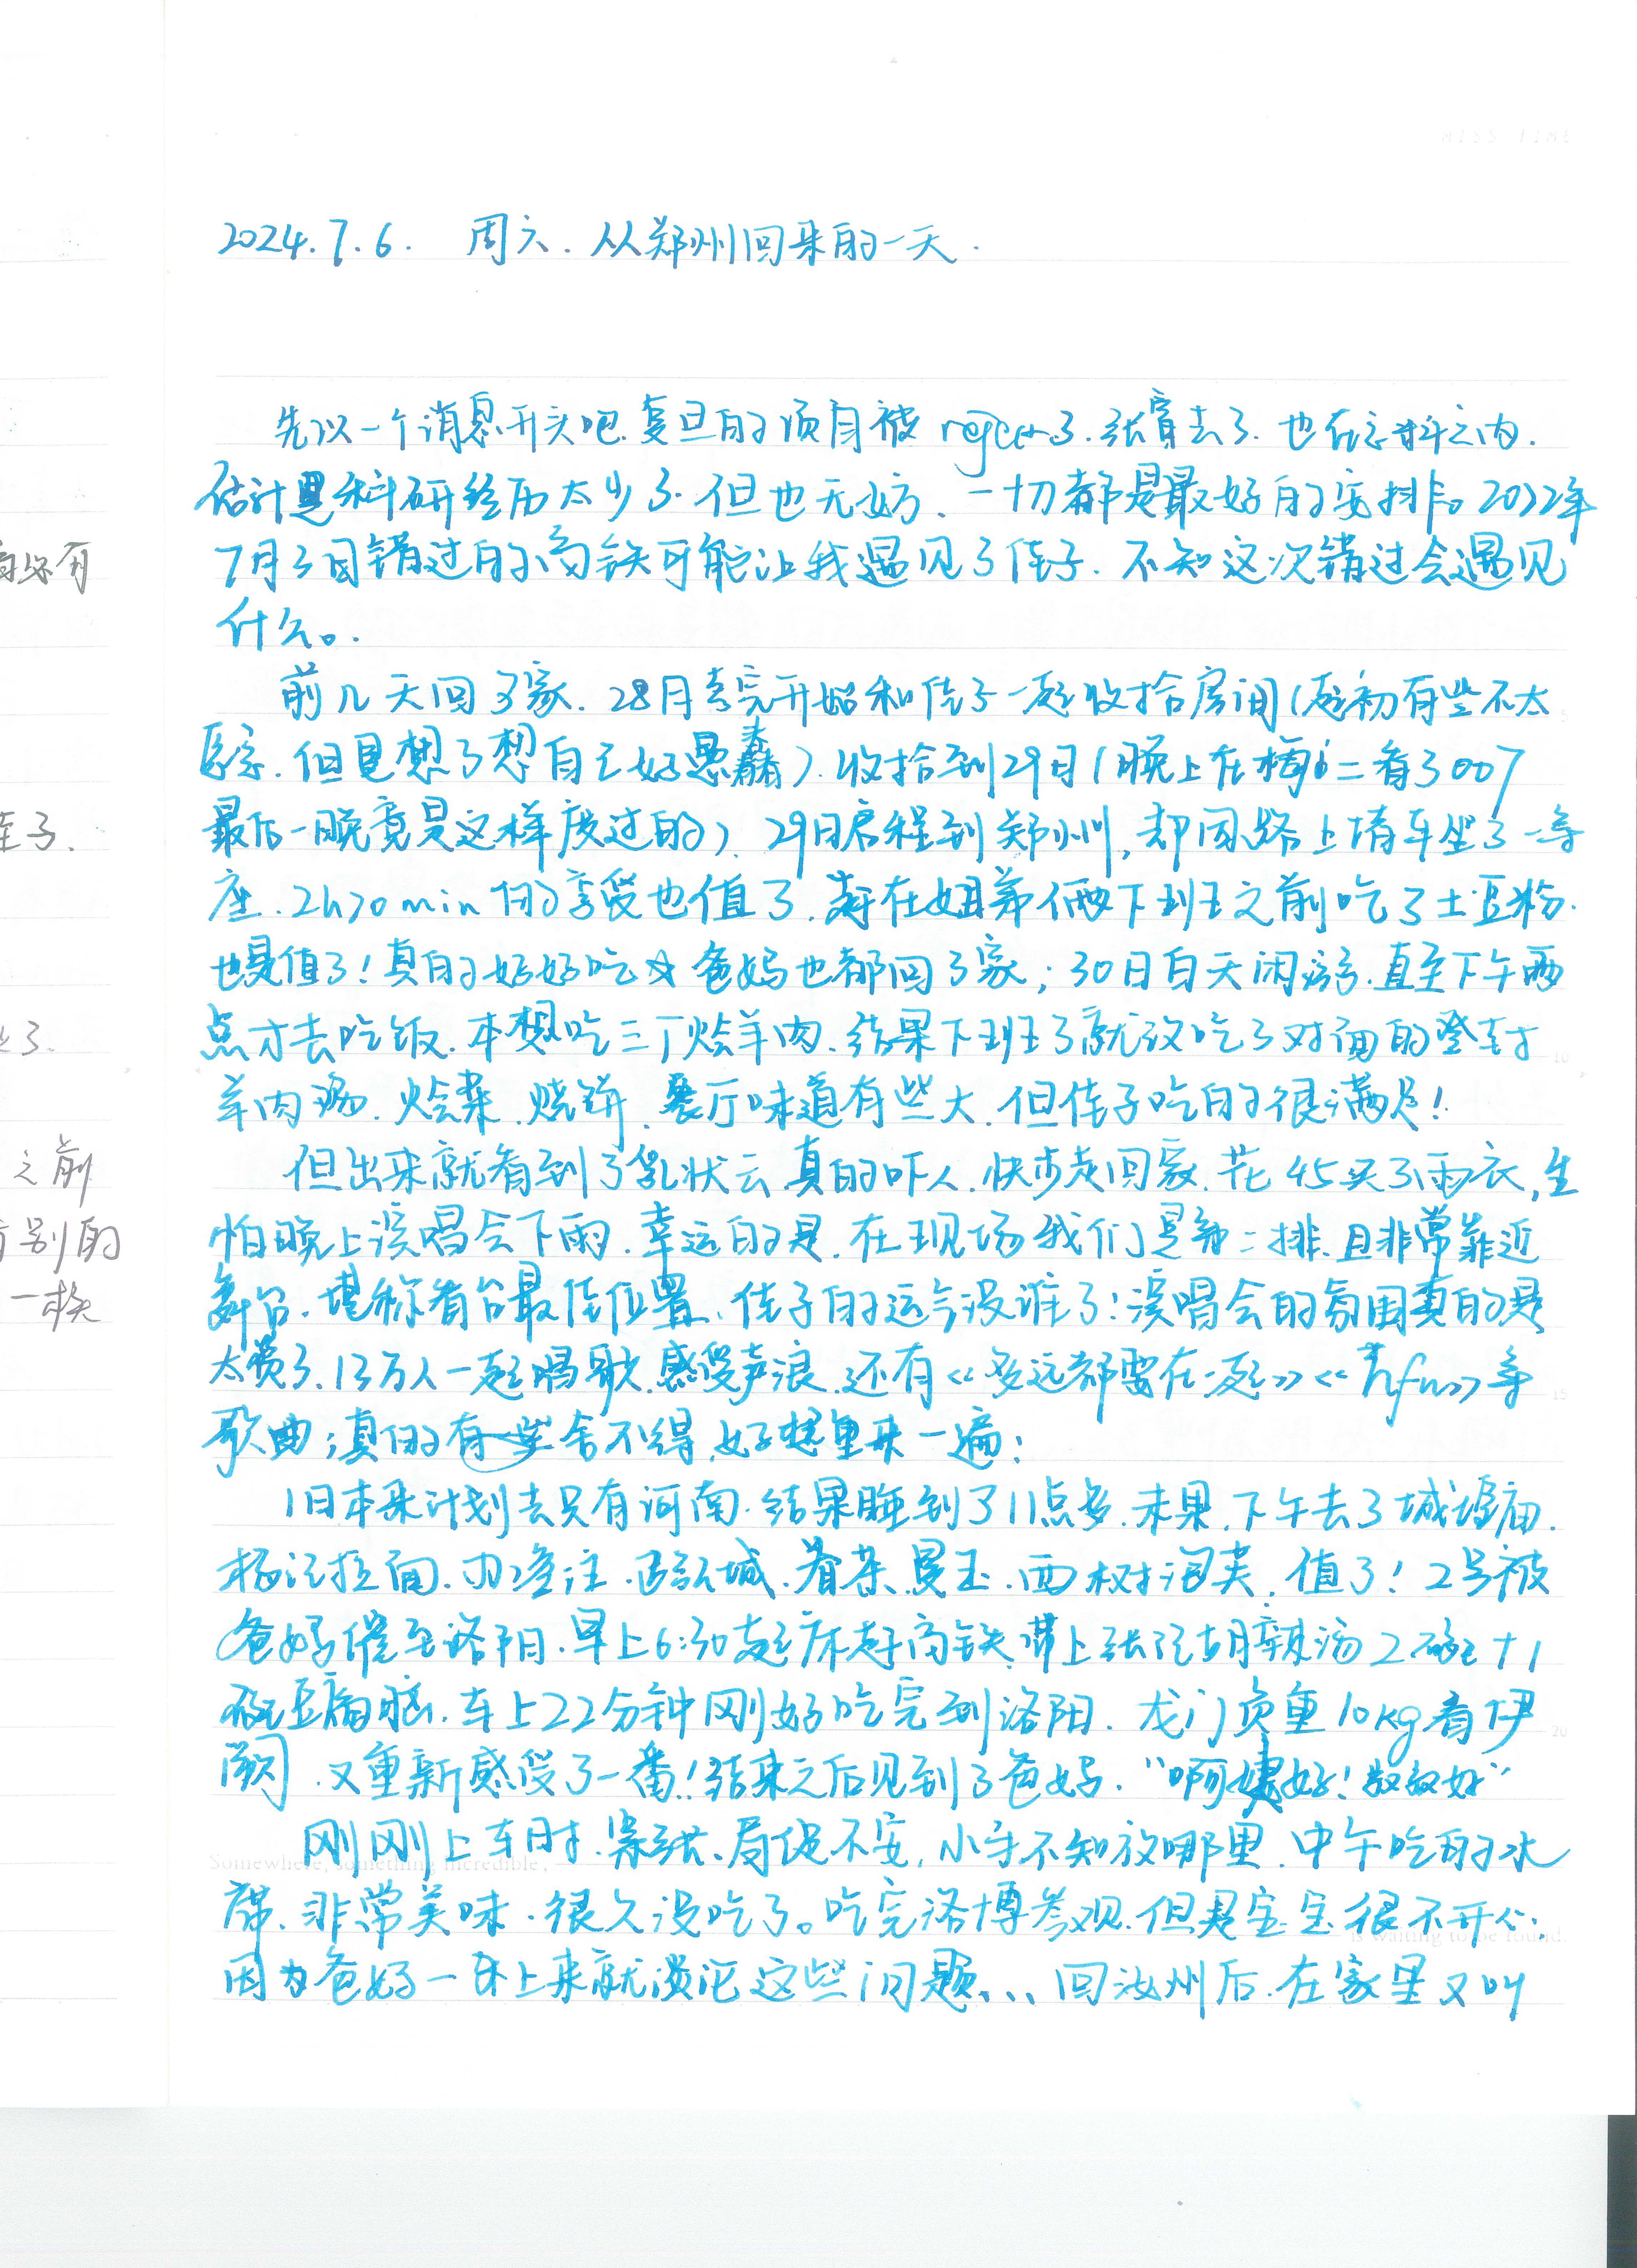 MISS TIME
2024.7.6. 周六. 从郑州回来的一天.
先以一个消息开头吧. 复旦的项目被 reject了. 去了. 也在意料之内.
估计是科研经历太少了. 但也无妨. 一切都是最好的安排。2022年
7月3日错过的高铁可能让我遇见了佳子. 不知这次错过会遇见
什么。.
前几天回了家. 28日考完开始和佳子一起收拾房间(起初有些不太
但是想了想自己好愚蠢). 收拾到29日(晚上在梅二看了007
最后一晚竟是这样度过的). 29日启程到郑州, 却因路上堵车坐了一等
座. 2h20min的享受也值了. 在姐弟俩下班之前吃了土豆粉.
也是值了! 真的好好吃 爸妈也都回了家; 30日白天闲. 直至下午两
点才去吃饭. 本想吃三丁烩羊肉. 结果下班了就改吃了对面的登封
羊肉汤. 烩菜. 烧饼. 餐厅味道有些大. 但佳子吃的很满足!
但出来就看到了乳状云. 真的吓人. 快步走回家. 花45买了雨衣, 生
怕晚上演唱会下雨. 幸运的是. 在现场我们是第二排. 且非常靠近
舞台. 堪称看台最佳位置. 佳子的运气没谁了! 演唱会的氛围真的是
太赞了. 13万人一起唱歌. 感受声浪. 还有《多远都要在一起》《》等
歌曲; 真的有些舍不得. 好想重来一遍;
1日本来计划去只有河南. 结果睡到了11点多. 未果. 下午去了城隍庙.
杨记拉面. 商城. 看茶. 曼玉. 西树泡芙. 值了! 2号被
爸妈催至洛阳. 早上6:30起床赶高铁. 带上张记胡辣汤2碗+1
碗豆腐脑. 车上22分钟刚好吃完到洛阳. 龙门负重10kg看伊
阙. 又重新感受了一番! 结束之后见到了爸妈. "啊姨好! 叔叔好"
刚刚上车时. 紧张. 局促不安, 小手不知放哪里. 中午吃的水
席. 非常美味. 很久没吃了。吃完洛博参观. 但是宝宝很不开心.
因为爸妈一上来就谈论这些问题... 回汝州后. 在家里又叫
Somewhere, something incredible,
is waiting to be found.
5
10
15
20
之前
别的
一样